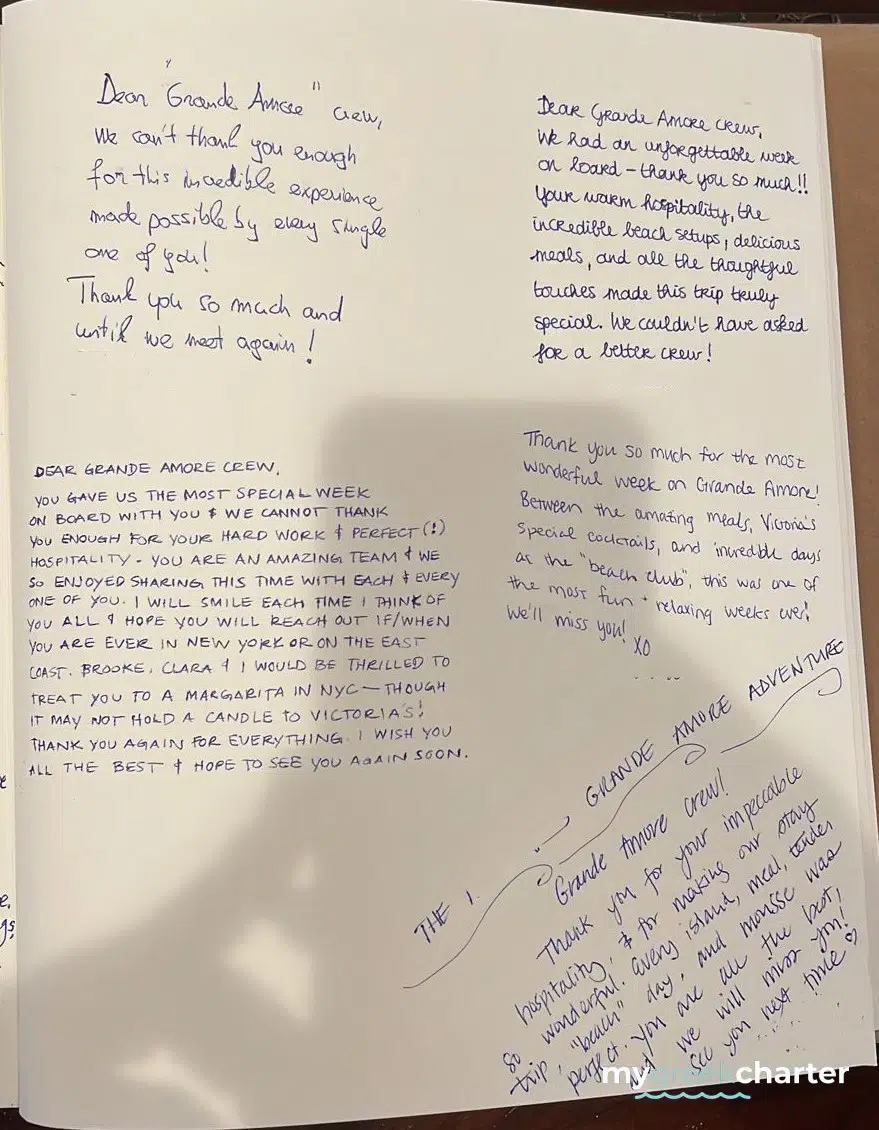 Dear "Grande Amore" crew,
We can't thank you enough
for this incredible experience
made possible by every single
one of you!
Thank you so much and
until we meet again!
Dear Grande Amore crew,
We had an unforgettable week
on board - thank you so much!!
Your warm hospitality, the
incredible beach setups, delicious
meals, and all the thoughtful
touches made this trip truly
special. We couldn't have asked
for a better crew!
DEAR GRANDE AMORE CREW,
YOU GAVE US THE MOST SPECIAL WEEK
ON BOARD WITH YOU & WE CANNOT THANK
YOU ENOUGH FOR YOUR HARD WORK & PERFECT (!)
HOSPITALITY - YOU ARE AN AMAZING TEAM & WE
SO ENJOYED SHARING THIS TIME WITH EACH & EVERY
ONE OF YOU. I WILL SMILE EACH TIME I THINK OF
YOU ALL & HOPE YOU WILL REACH OUT IF/WHEN
YOU ARE EVER IN NEW YORK OR ON THE EAST
COAST. BROOKE, CLARA & I WOULD BE THRILLED TO
TREAT YOU TO A MARGARITA IN NYC - THOUGH
IT MAY NOT HOLD A CANDLE TO VICTORIA'S!
THANK YOU AGAIN FOR EVERYTHING. I WISH YOU
ALL THE BEST & HOPE TO SEE YOU AGAIN SOON.
Thank you so much for the most
wonderful week on Grande Amore!
Between the amazing meals, Victoria's
special cocktails, and incredible days
at the "beach club", this was one of
the most fun + relaxing weeks ever!
We'll miss you!
XO
THE GRANDE AMORE ADVENTURE
Grande Amore crew!
Thank you for your impeccable
hospitality, & for making our stay
so wonderful. Every island, meal, tender
trip, "beach" day, and mousse was
perfect. You are all the best,
we will miss you!
See you next time ♡
mygreekcharter